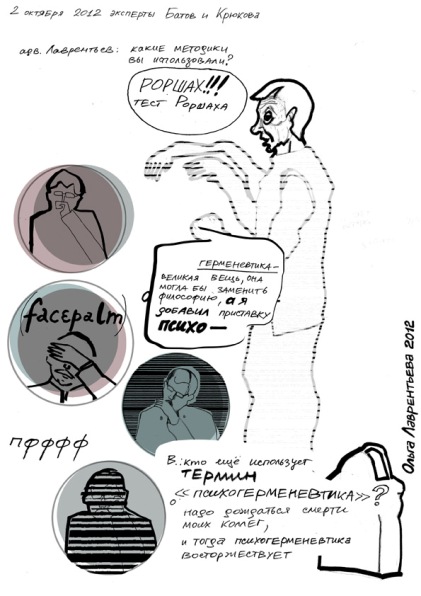 2 октября 2012 эксперты Батов и Крюкова
адв. Лаврентьев: какие методики
вы использовали?
РОРШАХ!!!
тест Роршаха
герменевтика –
великая вещь, она
могла бы заменить
философию, а я
добавил приставку
психо –
facepalm
пффффф
В.: кто ещё использует
термин
«психогерменевтика»?
надо дождаться смерти
моих коллег,
и тогда психогерменевтика
восторжествует
Ольга Лаврентьева 2012